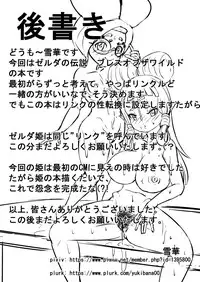 後書き
どうも～雪華です
今回はゼルダの伝説　ブレスオブザワイルド
の本です
最初からずっと考えて、やっぱリンクルど
一緒の方がいいなで、そう決めます
でもこの本はリンクの性転換に設定しますたがら
ゼルダ姫は同じ"リンク"を呼んでいます
この分まだよろしくお願いします、？
今回の姫は最初の
に見えの時は好きでした
だがら姫の本描くたいで、
これで怨念を完成たな(?)
以上，皆さんありがとうございました。
この後まだよろしくお願いします。
雪華
pixiv:
plurk: http://www.plurk.com/yukibana00